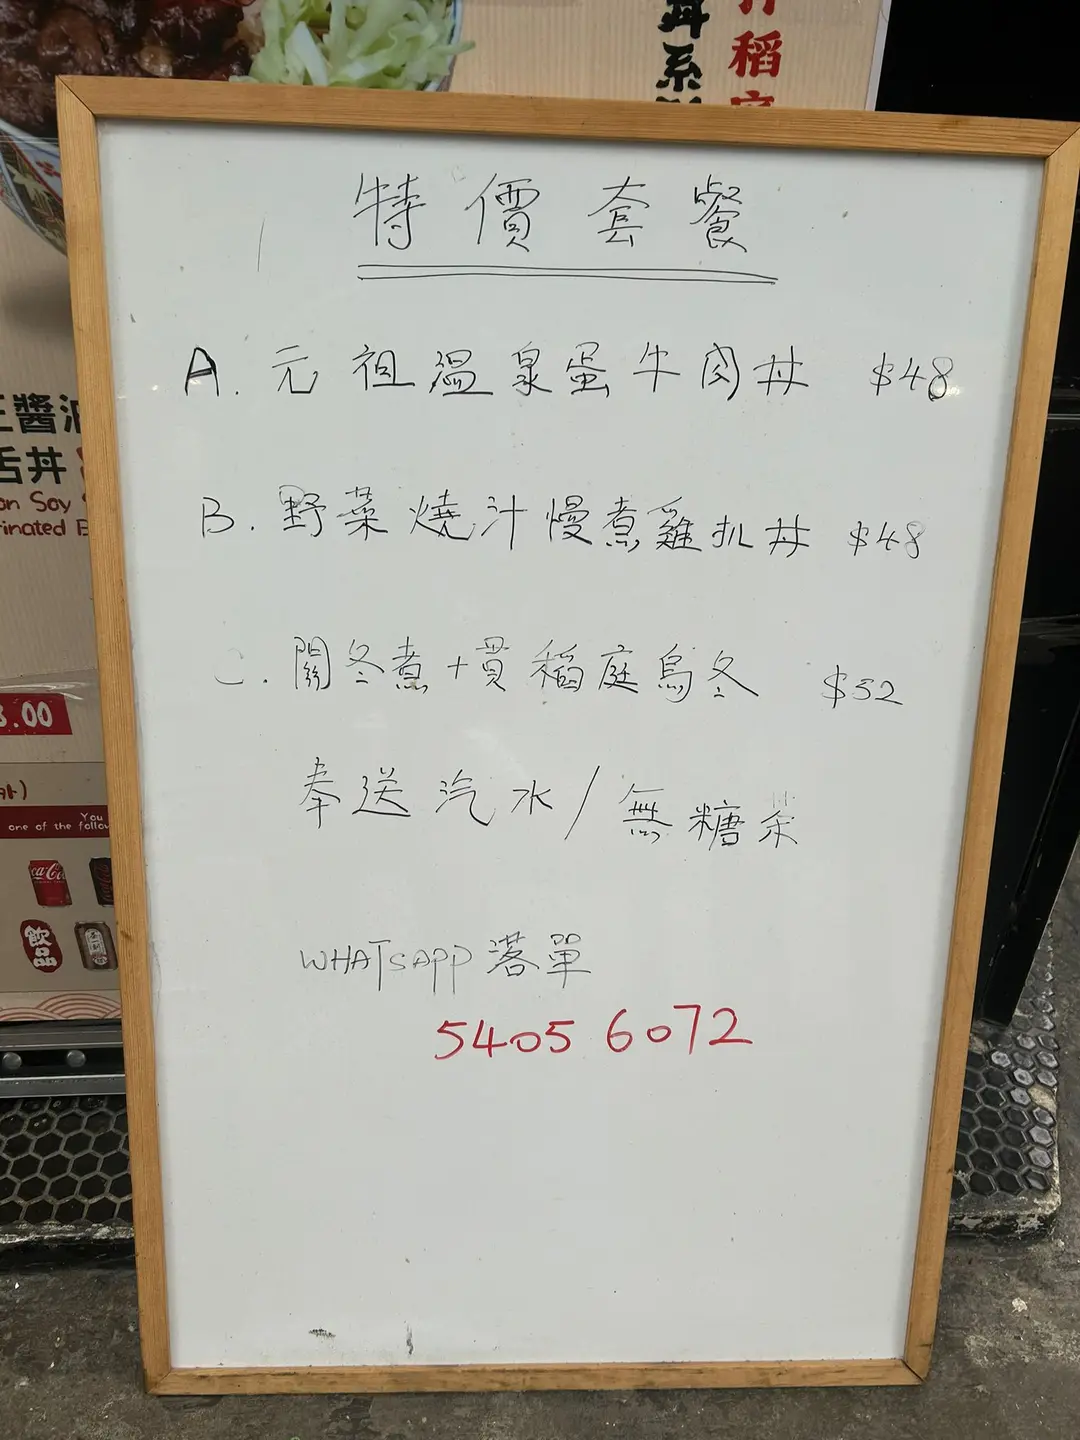 丼系
稻
特價套餐
A. 元祖溫泉蛋牛肉丼 $48
B. 野菜燒汁慢煮雞扒丼 $48
C. 關冬煮+貫稻庭烏冬 $52
奉送汽水/無糖茶
WHATSAPP 落單
5405 6072
醬油
舌丼
on Soy
rinated B
8.00
You
one of the follow
Coca-Cola
飲品